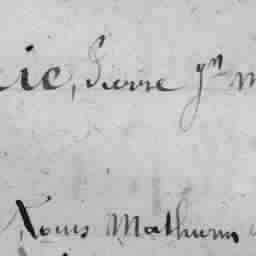 ic, Pierre Gm M
Louis Mathurin